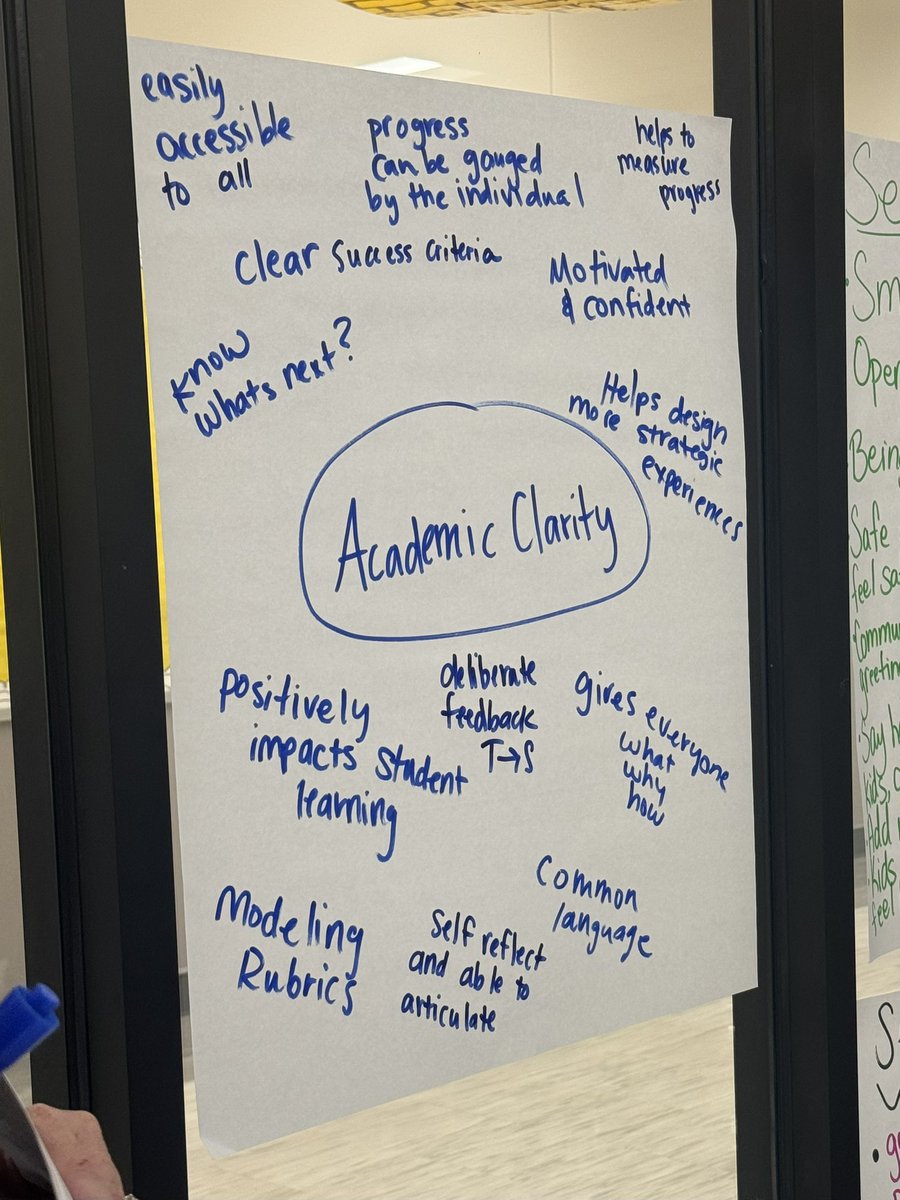 easily
accessible
to all
progress
can be gauged
by the individual
helps to
measure
progress
Clear Success Criteria
Motivated
& confident
know
whats next?
Helps design
more strategic
experiences
Academic Clarity
positively
impacts student
learning
deliberate
feedback
T→S
gives everyone
what
why
how
Common
language
Modeling
Rubrics
Self reflect
and able to
articulate
Se
Sm
Oper
Being
Safe
feel sa
Commu
greetin
Say h
kids, c
Add
kids
feel
S